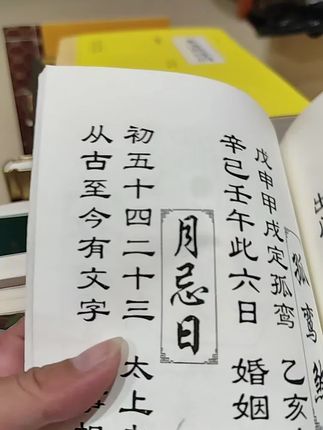 孤鸾
乙亥
戊申甲戌定孤鸾
辛巳壬午此六日 婚姻
月忌日
初五十四二十三 太上
从古至今有文字